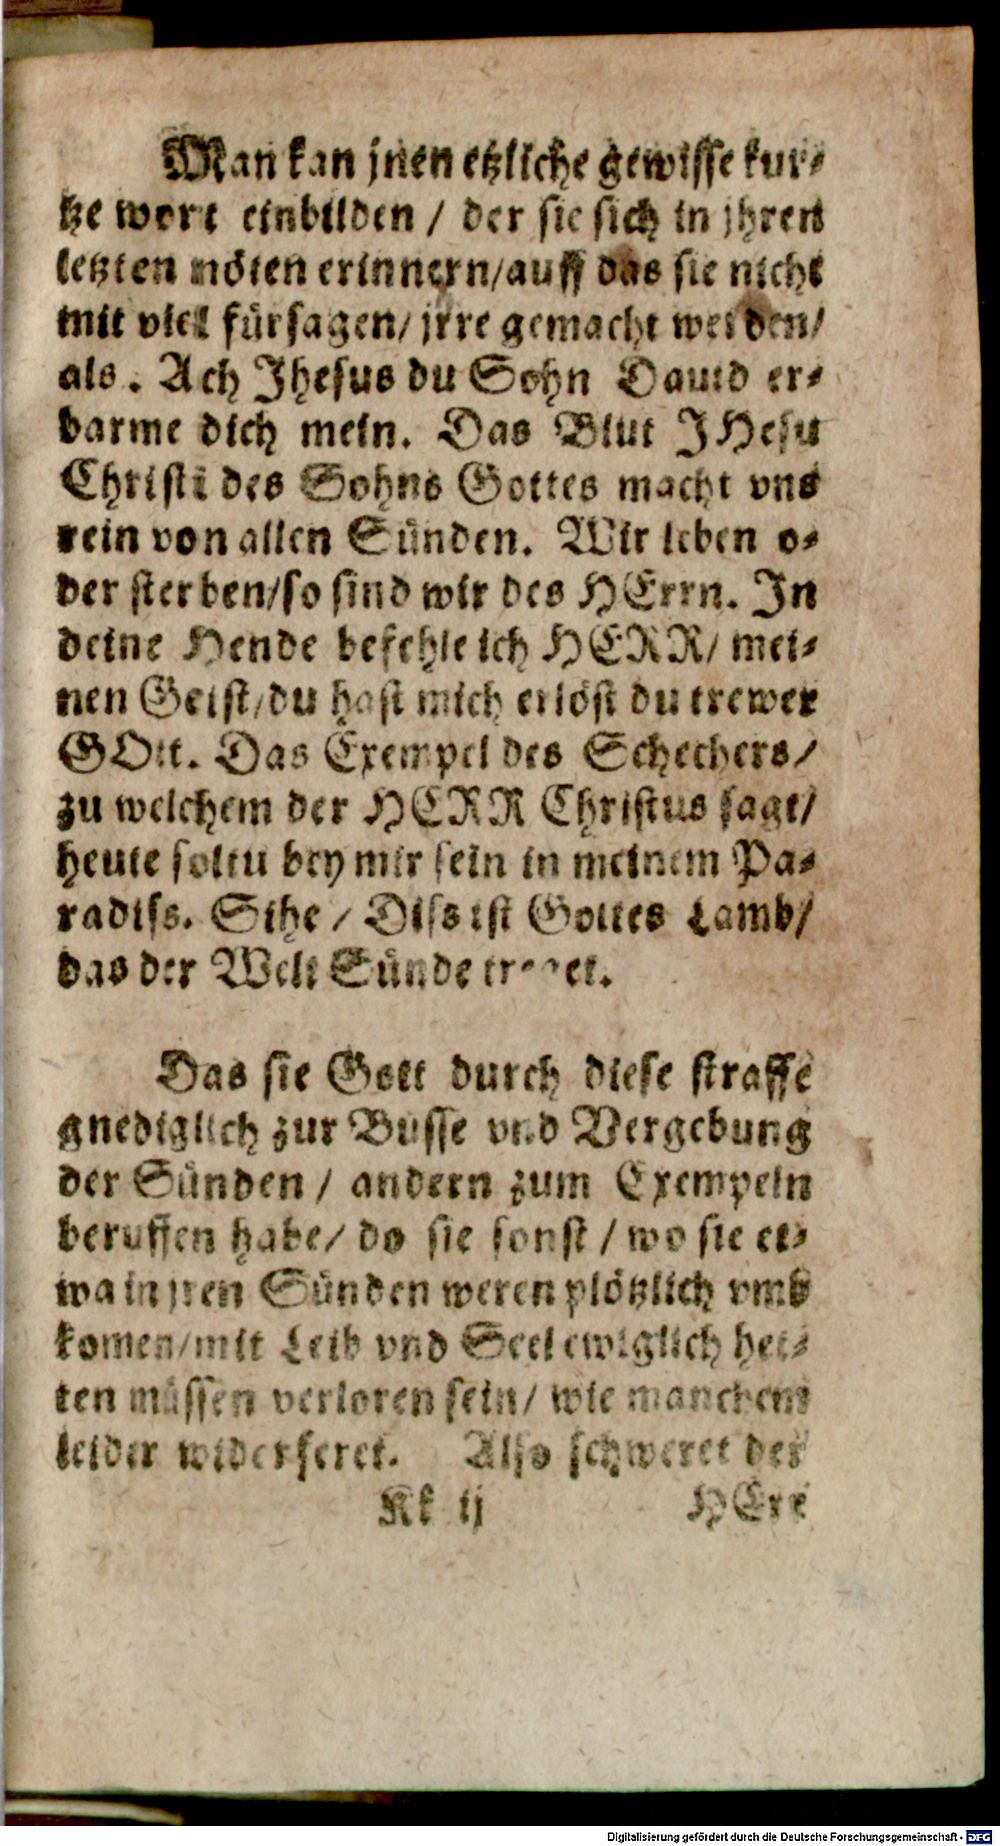 Man kan jnen etzliche gewisse kur⸗
tze wort einbilden / der sie sich in jhren
letzten nöten erinnern/auff das sie nicht
mit viel fürsagen/ jrre gemacht werden/
als. Ach Jhesus du Sohn Dauid er⸗
barme dich mein. Das Blut JHesu
Christi des Sohns Gottes macht vns
rein von allen Sünden. Wir leben o⸗
der sterben/so sind wir des HErrn. In
deine Hende befehle ich HERR/ mei⸗
nen Geist/du hast mich erlöst du trewer
GOtt. Das Exempel des Schechers/
zu welchem der HERR Christus sagt/
heute soltu bey mir sein in meinem Pa⸗
radiss. Sihe / Diss ist Gottes Lamb/
das der Welt Sünde treget.
Das sie Gott durch diese straffe
gnediglich zur Busse vnd Vergebung
der Sünden / andern zum Exempeln
beruffen habe/ do sie sonst / wo sie et⸗
wa in jren Sünden weren plötzlich vmb
komen/mit Leib vnd Seel ewiglich het⸗
ten müssen verloren sein/ wie manchem
leider widerferet. Also schweret der
Kk ij HErr
Digitalisierung gefördert durch die Deutsche Forschungsgemeinschaft - DFG